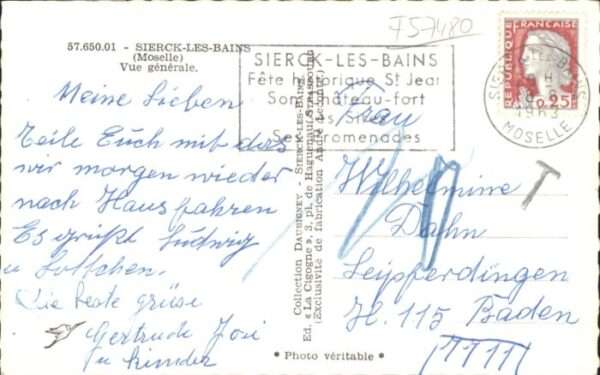 F57480
57.650.01 - SIERCK-LES-BAINS
(Moselle)
Vue générale.
SIERCK-LES-BAINS
Fête historique St Jean
Son château-fort
Ses
Ses promenades
REPUBLIQUE FRANÇAISE
0,25
1963
MOSELLE
Meine Lieben
Teile Euch mit das
wir morgen wieder
nach Haus fahren
Es grüßt Ludwig
u Lottchen.
Die beste grüse
Gertrude Josi
u kinder
Collection DAUBIGNEY - SIERCK-LES-BAINS.
Ed. « La Cigogne », 3, pl. de Haguenau, Strasbourg
(Exclusivité de fabrication André Leconte.)
Frau
Wilhelmine
Dahn
Leipferdingen
H. 115 Baden
T
* Photo véritable *